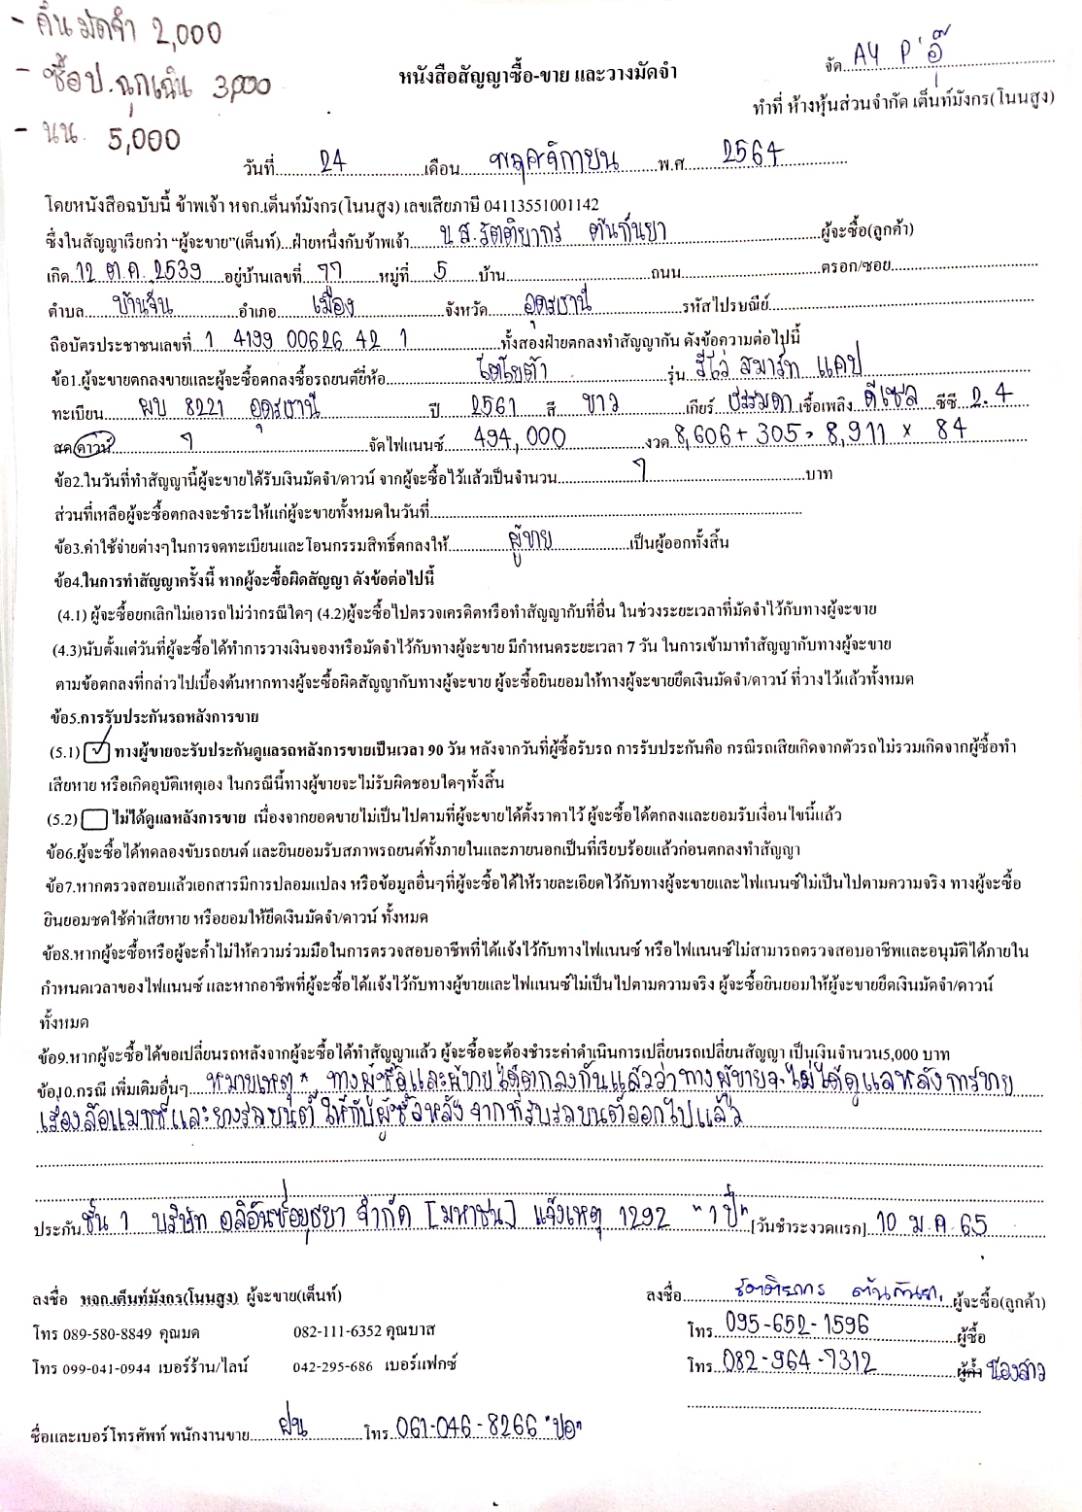 - คืนมัดจำ 2,000
- ซื้อป.ฉุกเฉิน 3,000
- นน. 5,000
จัด AY P'อุ๊
หนังสือสัญญาซื้อ-ขาย และวางมัดจำ
ทำที่ ห้างหุ้นส่วนจำกัด เต็นท์มังกร(โนนสูง)
วันที่ 24 เดือน พฤศจิกายน พ.ศ 2564
โดยหนังสือฉบับนี้ ข้าพเจ้า หจก.เต็นท์มังกร(โนนสูง) เลขเสียภาษี 04113551001142
ซึ่งในสัญญาเรียกว่า "ผู้จะขาย"(เต็นท์)...ฝ่ายหนึ่งกับข้าพเจ้า น.ส.รัตติยากร ตันกันยา ผู้จะซื้อ(ลูกค้า)
เกิด 12 ต.ค. 2539 อยู่บ้านเลขที่ 77 หมู่ที่ 5 บ้าน ถนน ตรอก/ซอย
ตำบล บ้านจั่น อำเภอ เมือง จังหวัด อุดรธานี รหัสไปรษณีย์
ถือบัตรประชาชนเลขที่ 1 4199 00626 42 1 ทั้งสองฝ่ายตกลงทำสัญญากัน ดังข้อความต่อไปนี้
ข้อ1.ผู้จะขายตกลงขายและผู้จะซื้อตกลงซื้อรถยนต์ยี่ห้อ โตโยต้า รุ่น รีโว่ สมาร์ท แคป
ทะเบียน ผบ 8221 อุดรธานี ปี 2561 สี ขาว เกียร์ ธรรมดา เชื้อเพลิง ดีเซล ซีซี 2.4
สด/ดาวน์ 7 จัดไฟแนนซ์ 494,000 งวด 8,606 + 305 = 8,911 x 84
ข้อ2.ในวันที่ทำสัญญานี้ผู้จะขายได้รับเงินมัดจำ/ดาวน์ จากผู้จะซื้อไว้แล้วเป็นจำนวน 7 บาท
ส่วนที่เหลือผู้จะซื้อตกลงจะชำระให้แก่ผู้จะขายทั้งหมดในวันที่
ข้อ3.ค่าใช้จ่ายต่างๆในการจดทะเบียนและโอนกรรมสิทธิ์ตกลงให้ ผู้ขาย เป็นผู้ออกทั้งสิ้น
ข้อ4.ในการทำสัญญาครั้งนี้ หากผู้จะซื้อผิดสัญญา ดังข้อต่อไปนี้
(4.1) ผู้จะซื้อยกเลิกไม่เอารถไม่ว่ากรณีใดๆ (4.2)ผู้จะซื้อไปตรวจเครดิตหรือทำสัญญากับที่อื่น ในช่วงระยะเวลาที่มัดจำไว้กับทางผู้จะขาย
(4.3)นับตั้งแต่วันที่ผู้จะซื้อได้ทำการวางเงินจองหรือมัดจำไว้กับทางผู้จะขาย มีกำหนดระยะเวลา 7 วัน ในการเข้ามาทำสัญญากับทางผู้จะขาย
ตามข้อตกลงที่กล่าวไปเบื้องต้นหากทางผู้จะซื้อผิดสัญญากับทางผู้จะขาย ผู้จะซื้อยินยอมให้ทางผู้จะขายยึดเงินมัดจำ/ดาวน์ ที่วางไว้แล้วทั้งหมด
ข้อ5.การรับประกันรถหลังการขาย
(5.1) ทางผู้ขายจะรับประกันดูแลรถหลังการขายเป็นเวลา 90 วัน หลังจากวันที่ผู้ซื้อรับรถ การรับประกันคือ กรณีรถเสียเกิดจากตัวรถไม่รวมเกิดจากผู้ซื้อทำ
เสียหาย หรือเกิดอุบัติเหตุเอง ในกรณีนี้ทางผู้ขายจะไม่รับผิดชอบใดๆทั้งสิ้น
(5.2) ไม่ได้ดูแลหลังการขาย เนื่องจากยอดขายไม่เป็นไปตามที่ผู้จะขายได้ตั้งราคาไว้ ผู้จะซื้อได้ตกลงและยอมรับเงื่อนไขนี้แล้ว
ข้อ6.ผู้จะซื้อได้ทดลองขับรถยนต์ และยินยอมรับสภาพรถยนต์ทั้งภายในและภายนอกเป็นที่เรียบร้อยแล้วก่อนตกลงทำสัญญา
ข้อ7.หากตรวจสอบแล้วเอกสารมีการปลอมแปลง หรือข้อมูลอื่นๆที่ผู้จะซื้อได้ให้รายละเอียดไว้กับทางผู้จะขายและไฟแนนซ์ไม่เป็นไปตามความจริง ทางผู้จะซื้อ
ยินยอมชดใช้ค่าเสียหาย หรือยอมให้ยึดเงินมัดจำ/ดาวน์ ทั้งหมด
ข้อ8.หากผู้จะซื้อหรือผู้จะค้ำไม่ให้ความร่วมมือในการตรวจสอบอาชีพที่ได้แจ้งไว้กับทางไฟแนนซ์ หรือไฟแนนซ์ไม่สามารถตรวจสอบอาชีพและอนุมัติได้ภายใน
กำหนดเวลาของไฟแนนซ์ และหากอาชีพที่ผู้จะซื้อได้แจ้งไว้กับทางผู้ขายและไฟแนนซ์ไม่เป็นไปตามความจริง ผู้จะซื้อยินยอมให้ผู้จะขายยึดเงินมัดจำ/ดาวน์
ทั้งหมด
ข้อ9.หากผู้จะซื้อได้ขอเปลี่ยนรถหลังจากผู้จะซื้อได้ทำสัญญาแล้ว ผู้จะซื้อจะต้องชำระค่าดำเนินการเปลี่ยนรถเปลี่ยนสัญญา เป็นเงินจำนวน5,000 บาท
ข้อ10.กรณี เพิ่มเติมอื่นๆ หมายเหตุ* ทางผู้ซื้อและผู้ขายได้ตกลงกันแล้วว่าทางผู้ขายจะไม่ได้ดูแลหลังการขาย
เรื่องล้อแมกซ์และยางรถยนต์ ให้กับผู้ซื้อหลังจากที่รับรถยนต์ออกไปแล้ว
ประกัน ชั้น 1 บริษัท อลิอันซ์อยุธยา จำกัด [มหาชน] แจ้งเหตุ 1292 "1 ปี" [วันชำระงวดแรก] 10 ม.ค. 65
ลงชื่อ หจก.เต็นท์มังกร(โนนสูง) ผู้จะขาย(เต็นท์)
ลงชื่อ รัตติยากร ตันกันยา ผู้จะซื้อ(ลูกค้า)
โทร 089-580-8849 คุณมด 082-111-6352 คุณบาส
โทร 095-652-1596 ผู้ซื้อ
โทร 099-041-0944 เบอร์ร้าน/ไลน์ 042-295-686 เบอร์แฟกซ์
โทร 082-964-7312 ผู้ค้ำ น้องสาว
ชื่อและเบอร์โทรศัพท์ พนักงานขาย ฝน โทร 061-046-8266 "ปอ"